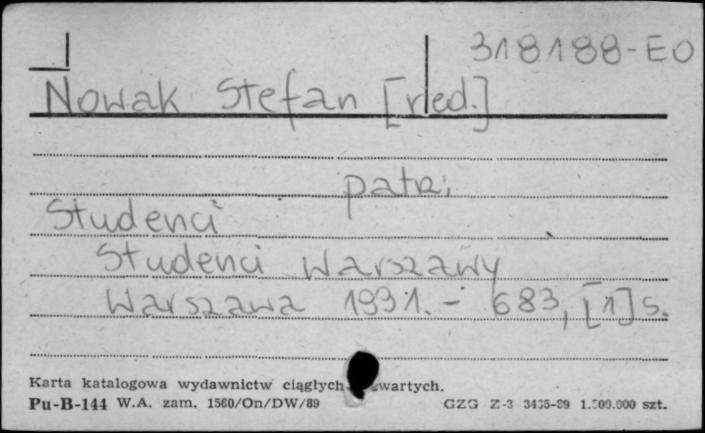 318188-EO
Nowak Stefan [red.]
patrz
Studenci
Studenci Warszawy
Warszawa 1991. - 683, [1] s.
Karta katalogowa wydawnictw ciągłych zwartych.
Pu-B-144 W.A. zam. 1560/On/DW/89 GZG Z-3 3435-89 1.500.000 szt.